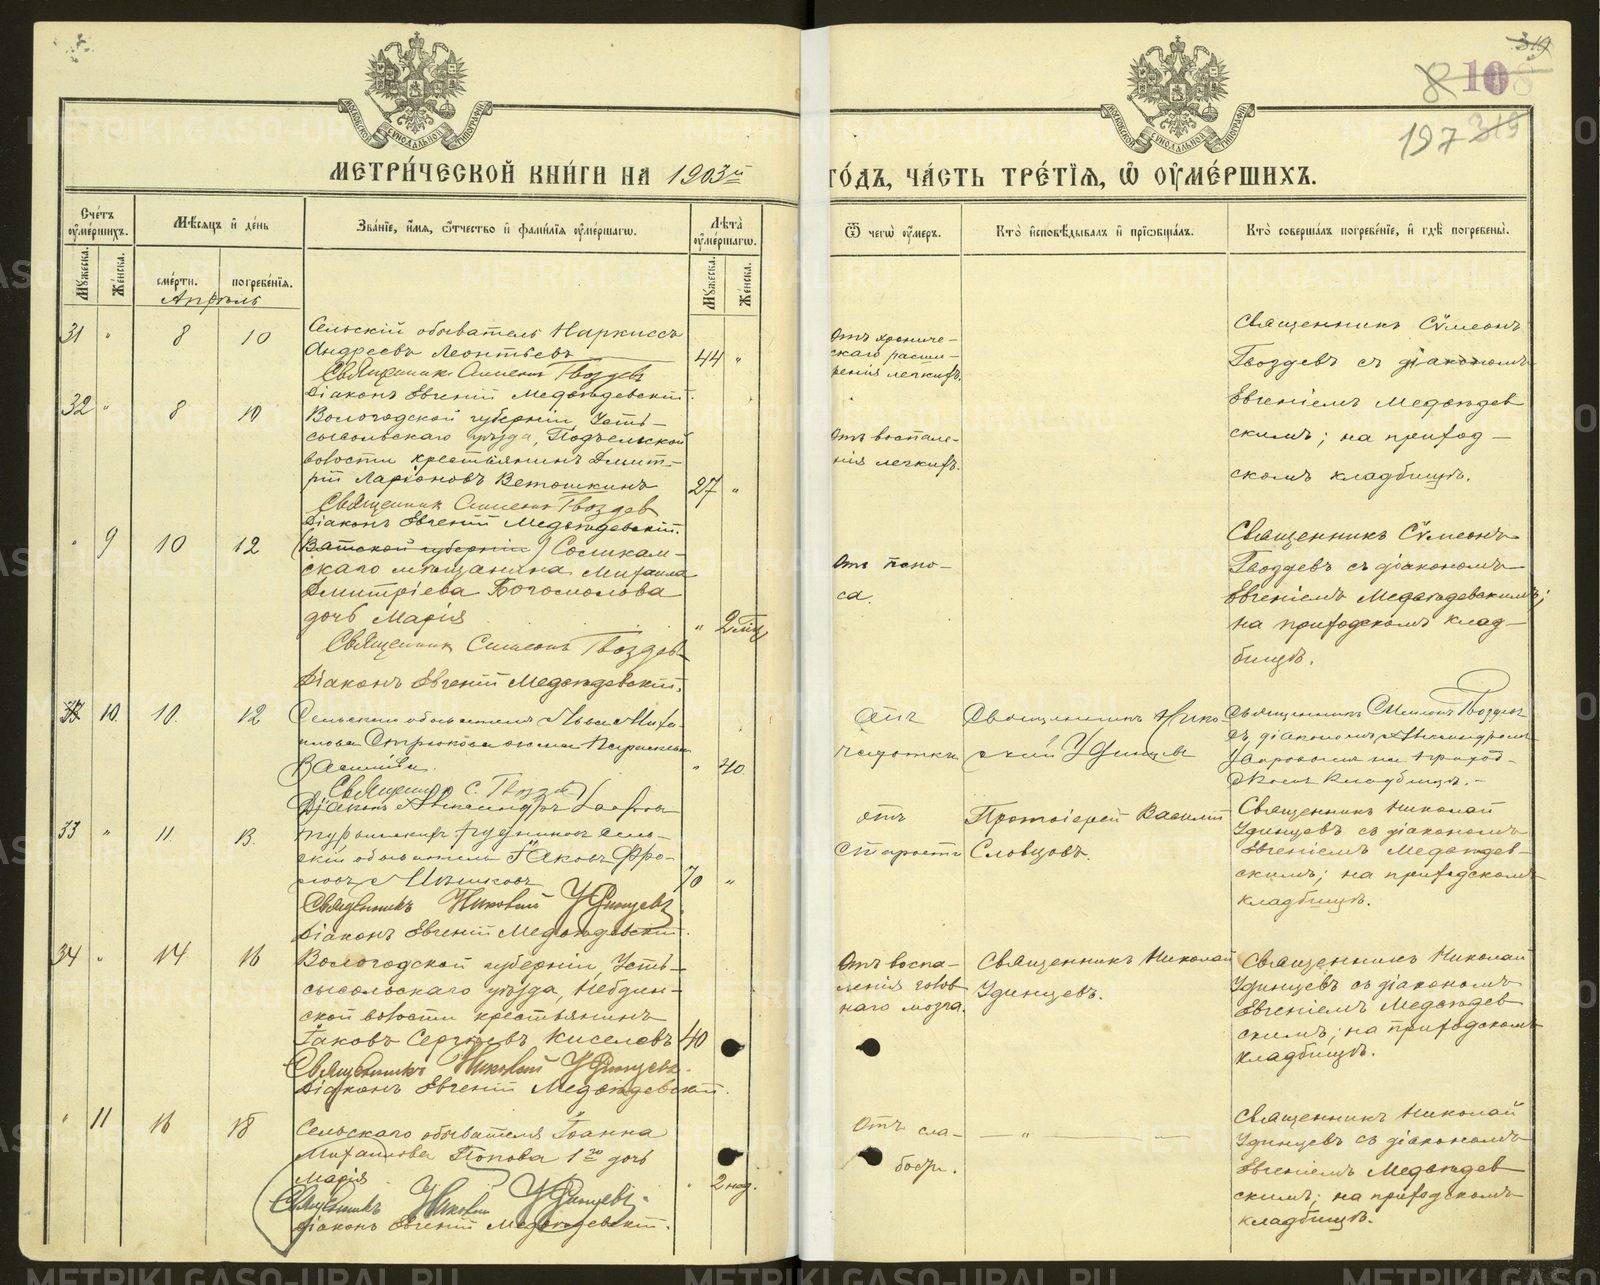 319
8 108
197 319
МОСКОВСКОЙ СѴНОДАЛЬНОЙ ТИПОГРАФІИ
МОСКОВСКОЙ СѴНОДАЛЬНОЙ ТИПОГРАФІИ
МЕТРИ́ЧЕСКОЙ КНИ́ГИ НА 1903й
ГО́ДЪ, ЧА́СТЬ ТРЕ́ТІЯ, Ѡ ОУМЕ́РШИХЪ.
Сче́тъ оуме́ршихъ.
Му́жеска.
Же́нска.
Мѣ́сяцъ и де́нь
сме́рти.
погребе́нія.
Зва́ніе, и́мя, ѻ́тчество и фами́лія оуме́ршагѡ.
Лѣ́та оуме́ршагѡ.
Му́жеска.
Же́нска.
Ѿ чегѡ̀ оу́меръ.
Кто̀ и҆сповѣ́дывалъ и прїѡбща́лъ.
Кто̀ соверша́лъ погребе́ніе, и гдѣ̀ погребены̀.
Апрѣль
31 " 8 10
Сельскій обыватель Наркиссъ
Андреевъ Леонтьевъ
44 "
Священникъ Симеонъ Гвоздевъ
Діаконъ Евгеній Медвѣдевскій.
Отъ хрониче-
скаго расши-
ренія легкихъ.
Священникъ Сѵмеонъ
Гвоздевъ съ діакономъ
Евгеніемъ Медвѣдев
скимъ; на приход-
скомъ кладбищѣ.
32 " 8 10
Вологодской губерніи, Усть-
сысольскаго уѣзда, Подъельской
волости крестьянинъ Дмит-
рій Ларіоновъ Ветошкинъ
27 "
Священникъ Симеонъ Гвоздев
Діаконъ Евгеній Медвѣдевскій.
Отъ воспале-
нія легкихъ.
" 9 10 12
(Вятской губерніи) Соликам-
скаго мѣщанина Михаила
Дмитріева Богомолова
дочь Марія
" 2 мѣс
Священникъ Симеонъ Гвоздевъ
Діаконъ Евгеній Медвѣдевскій.
Отъ поно-
са.
Священникъ Сѵмеонъ
Гвоздевъ съ діакономъ
Евгеніемъ Медвѣдевскимъ;
на приходскомъ клад-
бищѣ.
10 10. 12
Сельскаго обывателя Льва Миха-
илова Стрюкова жена Параскева
Васильева.
" 40
Священникъ С. Гвоздев
Діаконъ Александръ
Отъ
чахотки
Священникъ Нико-
лай Удинцевъ
Священникъ Симеонъ Гвоздевъ
съ діакономъ Александромъ
на приход-
скомъ кладбищѣ.-
33 " 11. 13.
рудниковъ сель-
скій обыватель Іаковъ Фро-
ловъ Мѣшковъ
70 "
Священникъ Николай Удинцевъ
Діаконъ Евгеній Медвѣдевскій.
отъ
старости
Протоіерей Василій
Словцовъ.
Священникъ Николай
Удинцевъ съ діакономъ
Евгеніемъ Медвѣдев-
скимъ; на приходскомъ
кладбищѣ.
34 " 14 16
Вологодской губерніи, Усть-
сысольскаго уѣзда, Небдин-
ской волости крестьянинъ
Іаковъ Сергѣевъ Киселевъ
40
Священникъ Николай Удинцевъ.
Діаконъ Евгеній Медвѣдевскій.
Отъ воспа-
ленія голов
наго мозга.
Священникъ Николай
Удинцевъ.
Священникъ Николай
Удинцевъ съ діакономъ
Евгеніемъ Медвѣдев
скимъ; на приходскомъ
кладбищѣ.
" 11 16 18
Сельскаго обывателя Іоанна
Михаилова Попова 1го дочь
Марія
" 2 нед.
Священникъ Николай Удинцевъ.
Діаконъ Евгеній Медвѣдевскій.
Отъ сла-
бости.
— " —
Священникъ Николай
Удинцевъ съ діакономъ
Евгеніемъ Медвѣдев
скимъ; на приходскомъ
кладбищѣ.
METRIKI.GASO-URAL.RU